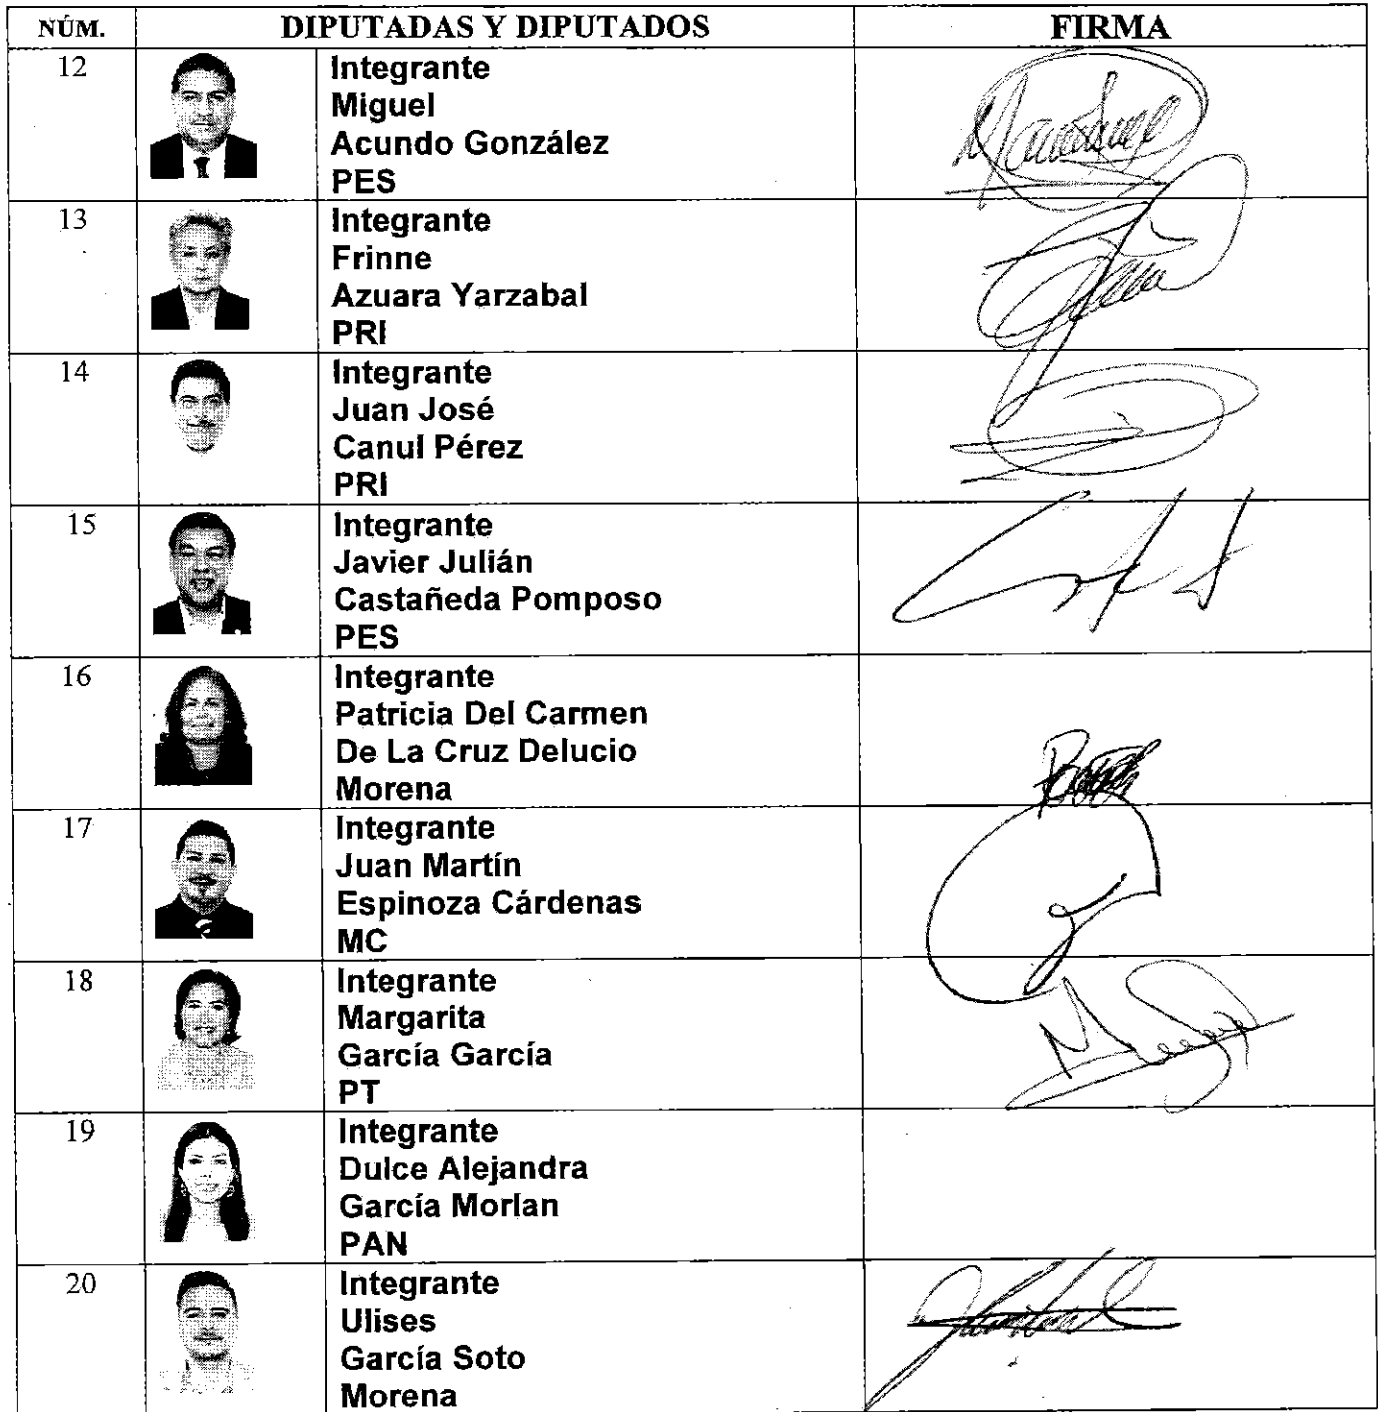 NÚM. DIPUTADAS Y DIPUTADOS FIRMA
12 Integrante
Miguel
Acundo González
PES
13 Integrante
Frinne
Azuara Yarzabal
PRI
14 Integrante
Juan José
Canul Pérez
PRI
15 Integrante
Javier Julián
Castañeda Pomposo
PES
16 Integrante
Patricia Del Carmen
De La Cruz Delucio
Morena
17 Integrante
Juan Martín
Espinoza Cárdenas
MC
18 Integrante
Margarita
García García
PT
19 Integrante
Dulce Alejandra
García Morlan
PAN
20 Integrante
Ulises
García Soto
Morena